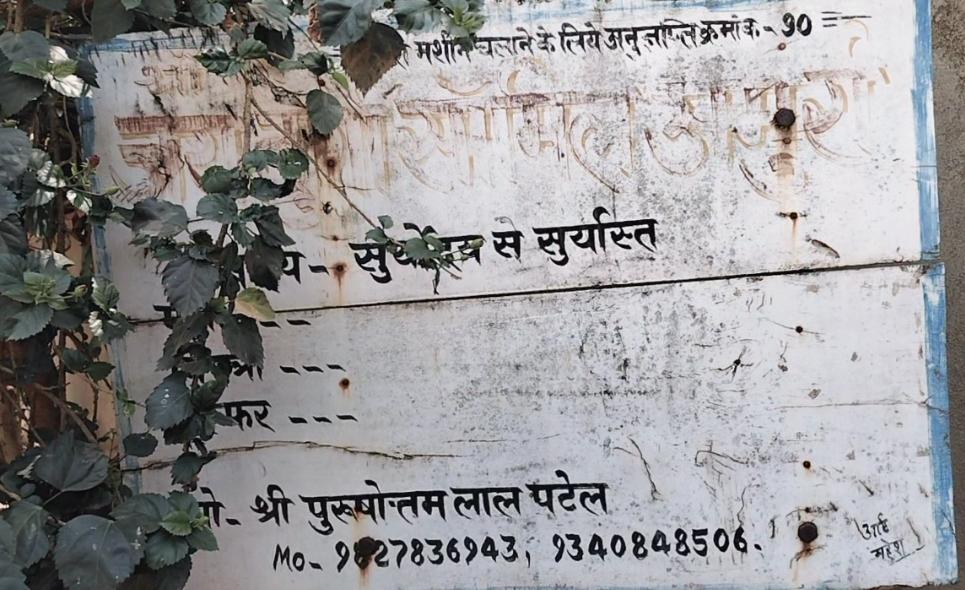 मशीन चलाने के लिये अनुज्ञप्ति क्रमांक - 90
सॉ मिल
सुर्योदय से सुर्यास्त
---
---
फर ---
श्री पुरूषोत्तम लाल पटेल
Mo- 9827836943, 9340848506.
आर्ट
महेश